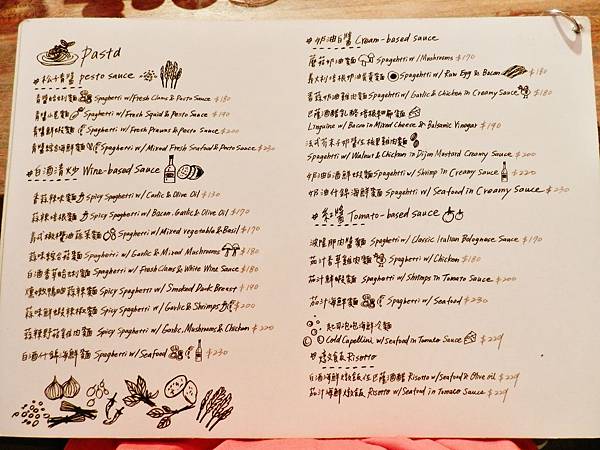 Pasta
#松子青醬 pesto sauce
青醬蛤蜊麵 Spaghetti w/Fresh Clams & Pesto Sauce $180
青醬小卷麵 Spaghetti w/ Fresh Squid & Pesto Sauce $190
青醬鮮蝦麵 Spaghetti w/ Fresh Prawns & Pesto Sauce $200
青醬綜合海鮮麵 Spaghetti w/ Mixed Fresh Seafood & Pesto Sauce $230
#白酒清炒 Wine-based Sauce
香蒜辣味麵 Spicy Spaghetti w/ Garlic & Olive Oil $130
蒜辣培根麵 Spicy Spaghetti w/ Bacon, Garlic & Olive Oil $170
義式橄欖油蔬菜麵 Spaghetti w/ Mixed vegetable & Basil $170
蒜味綜合菇麵 Spaghetti w/ Garlic & Mixed Mushrooms $180
白酒青蒜蛤蜊麵 Spaghetti w/ Fresh Clams & White Wine Sauce $180
燻軟鴨胸蒜辣麵 Spicy Spaghetti w/ Smoked Duck Breast $190
蒜味鮮蝦辣椒麵 Spicy Spaghetti w/ Garlic & Shrimps $200
蒜辣野菇雞肉麵 Spicy Spaghetti w/ Garlic, Mushrooms & Chicken $220
白酒什錦海鮮麵 Spaghetti w/ Seafood $230
#奶油白醬 Cream-based sauce
蘑菇奶油麵 Spaghetti w/ Mushrooms $170
義大利培根奶油蛋黃麵 Spaghetti w/ Raw Egg & Bacon $180
蒜菇奶油雞肉麵 Spaghetti w/ Garlic & Chicken in Creamy Sauce $180
巴薩酒醋乳酪培根細扁麵
Linguine w/ Bacon in Mixed Cheese & Balsamic Vinegar $190
法式芥末籽奶醬佐核果雞肉麵
Spaghetti w/ Walnut & Chicken in Dijon Mustard Creamy Sauce $200
奶油白酒鮮蝦麵 Spaghetti w/ Shrimp in Creamy Sauce $220
奶油什錦海鮮麵 Spaghetti w/ Seafood in Creamy Sauce $230
#紅醬 Tomato-based sauce
波隆那肉醬麵 Spaghetti w/ Classic Italian Bolognese Sauce $170
茄汁香草雞肉麵 Spaghetti w/ Chicken $180
茄汁鮮蝦麵 Spaghetti w/ Shrimps in Tomato Sauce $200
茄汁海鮮麵 Spaghetti w/ Seafood $230
起司泡泡海鮮冷麵
Cold Capellini w/ Seafood in Tomato Sauce $229
#燉飯 Risotto
白酒海鮮燉飯佐巴薩酒醋 Risotto w/ Seafood & Olive oil $229
茄汁海鮮燉飯 Risotto w/ Seafood in Tomato Sauce $229